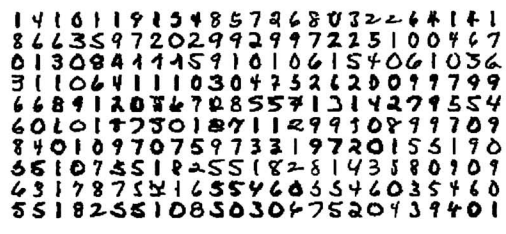 1410119154857268032264141
8663597202992997225100467
0130844145910106154061036
3110641110304752620099799
6689120867085571314279554
6010187301871129930899709
8401097075973319720155190
5510755182551828143580909
4317875416554605546035460
5518255108503047520439401